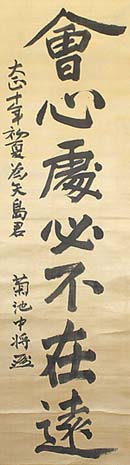 會心處必不在遠
大正十年初夏為矢島君
菊池中将